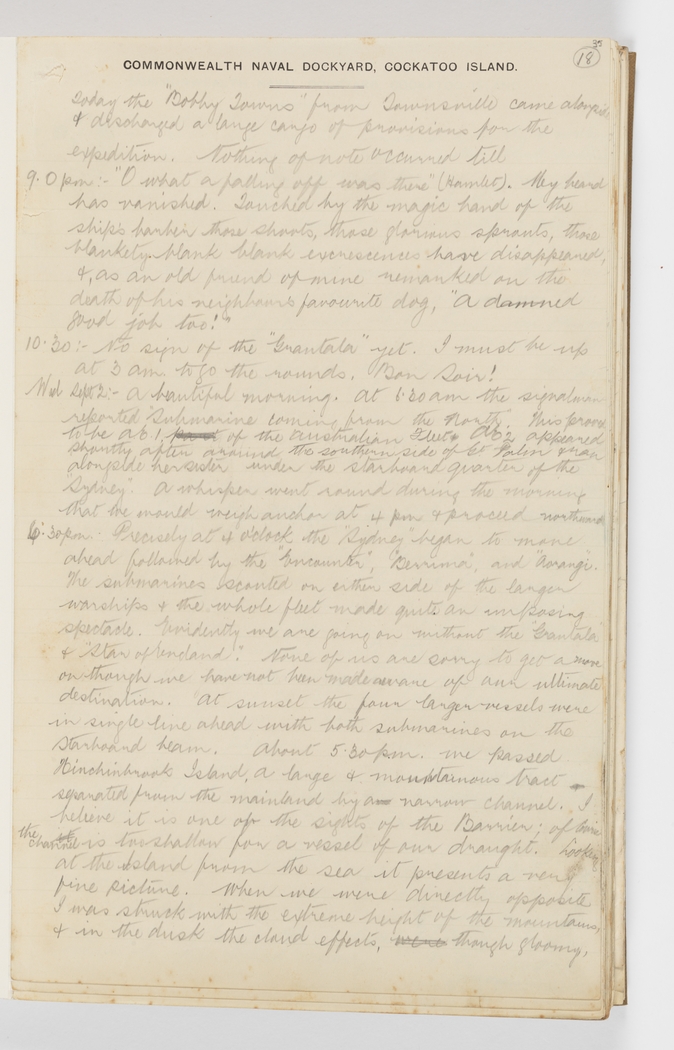 35
18
COMMONWEALTH NAVAL DOCKYARD, COCKATOO ISLAND.
Today the "Bobby Towns" from Townsville came alongside
& discharged a large cargo of provisions for the
expedition. Nothing of note occurred till
9.0 pm:- "O what a falling off was there" (Hamlet). My beard
has vanished. Touched by the magic hand of the
ship's barber those shoots, those glorious sprouts, those
blankety blank blank excrescences have disappeared,
&, as an old friend of mine remarked on the
death of his neighbours favourite dog, "A damned
good job too!"
10.30:- No sign of the "Grantala" yet. I must be up
at 3 am to go the rounds. Bon Soir!
Wed Sept 2:- A beautiful morning. At 6.30 am the signalman
reported "Submarine coming from the North". This proved
to be AE 1 of the Australian Fleet & AE 2 appeared
shortly after around the southern side of Gt Palm & ran
alongside her sister under the starboard quarter of the
"Sydney". A whisper went round during the morning
that we would weigh anchor at 4 pm & proceed northward
6.30 pm:- Precisely at 4 o'clock the "Sydney" began to move
ahead followed by the "Encounter", "Berrima", and "Aorangi".
The submarines scouted on either side of the larger
warships & the whole fleet made quite an imposing
spectacle. Evidently we are going on without the "Grantala"
& "Star of England". None of us are sorry to get a move
on though we have not been made aware of our ultimate
destination. At sunset the four larger vessels were
in single line ahead with both submarines on the
starboard beam. About 5.30 pm. we passed
Hinchinbrook Island, a large & mountainous tract
separated from the mainland by a narrow channel. I
believe it is one of the sights of the Barrier; of course
the channel is too shallow for a vessel of our draught. Looking
at the island from the sea it presents a very
fine picture. When we were directly opposite
I was struck with the extreme height of the mountains,
& in the dusk the cloud effects, were though gloomy,